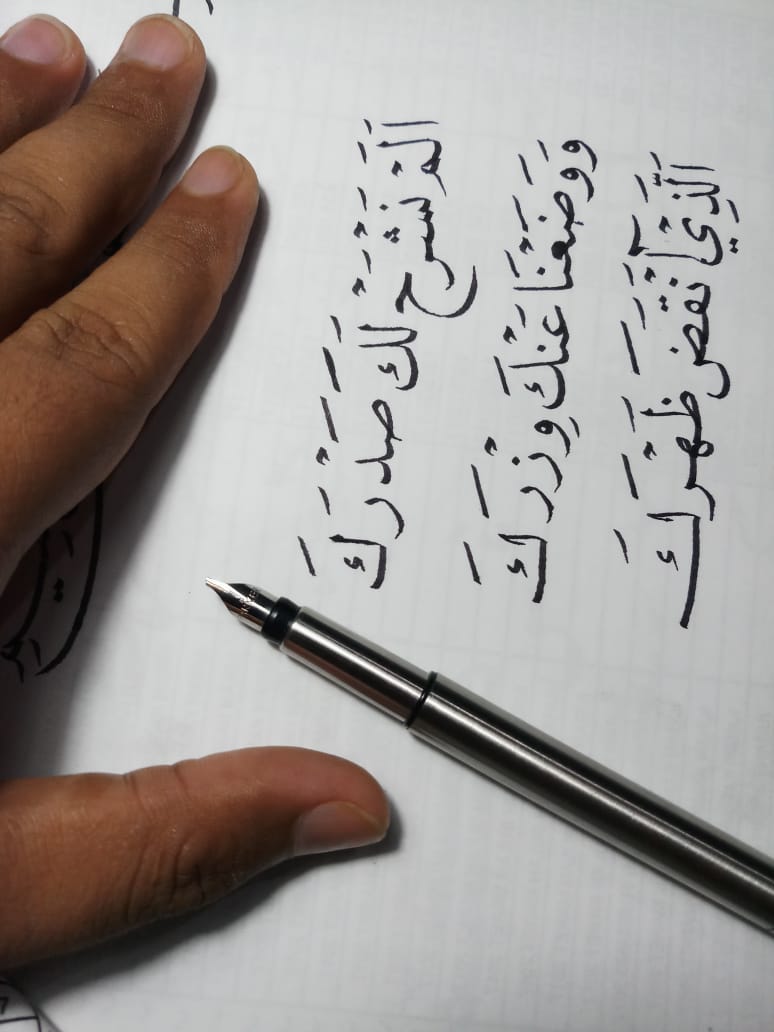 اَلَمْ نَشْرَحْ لَكَ صَدْرَكَ
وَوَضَعْنَا عَنْكَ وِزْرَكَ
الَّذِيْٓ اَنْقَضَ ظَهْرَكَ